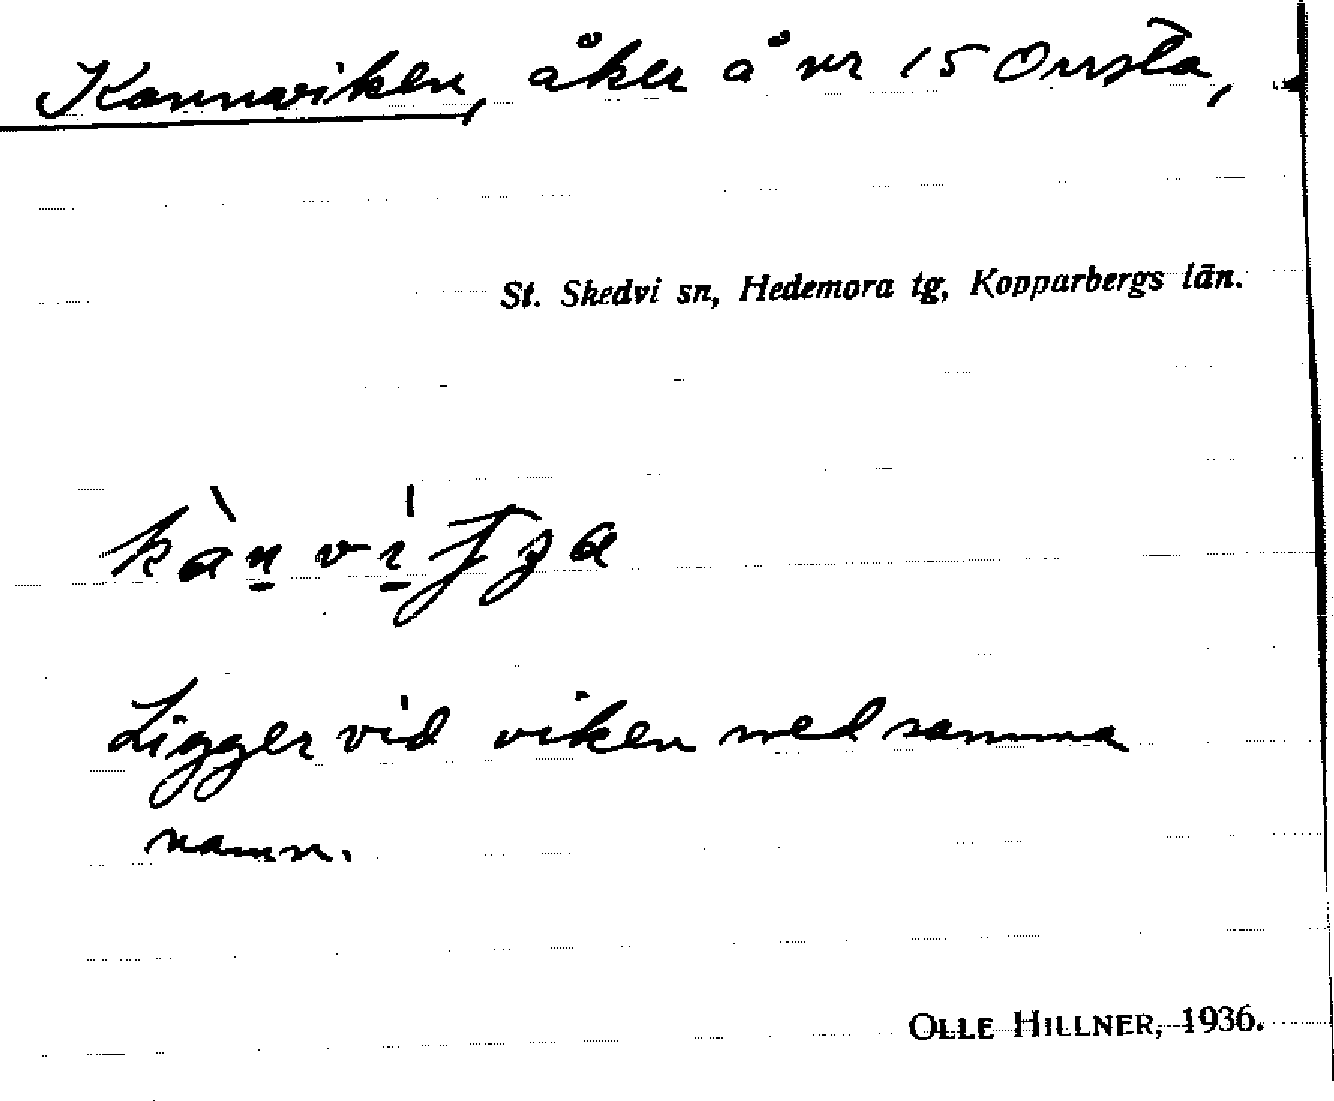 Kannviken, åker å nr 15 Orrsta,
St. Skedvi sn, Hedemora tg, Kopparbergs län.
Ligger vid viken med samma
namn.
OLLE HILLNER, 1936.